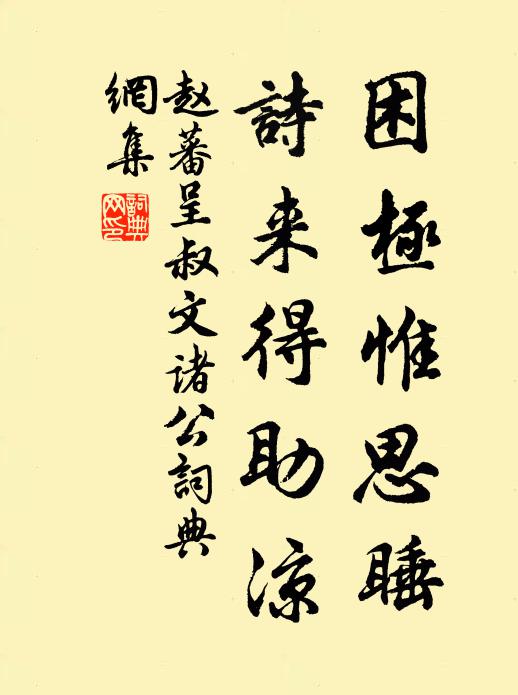 困極惟思睡
詩来得助凉
赵蕃呈叔文诸公詞典
網集
詞典网印